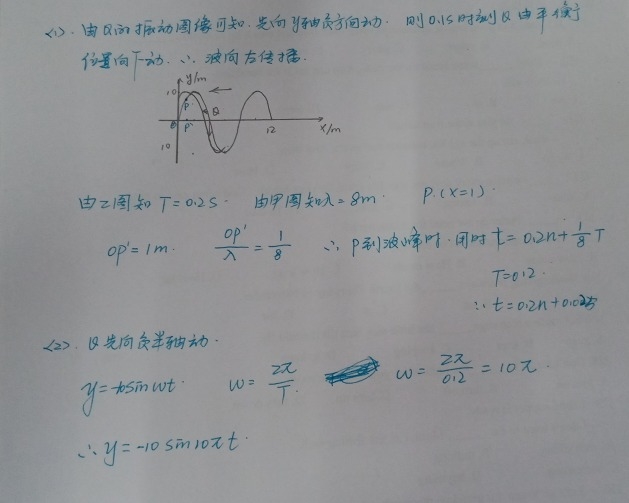 <1>. 由Q的振动图像可知.先向y轴负方向动. 则0.1s时刻Q由平衡
位置向下动. ∴ 波向左传播.
y/m
10
P
Q
0
P'
12
x/m
10
由乙图知 T=0.2s. 由甲图知λ=8m. P.(x=1).
OP'=1m. OP'/λ=1/8 ∴ P到波峰时.用时 t=0.2n+1/8 T
T=0.2.
∴ t=0.2n+0.025
<2>. Q先向负半轴动.
y=-10sinωt. ω=2π/T. ω=2π/0.2=10π.
∴ y=-10 sin10πt.